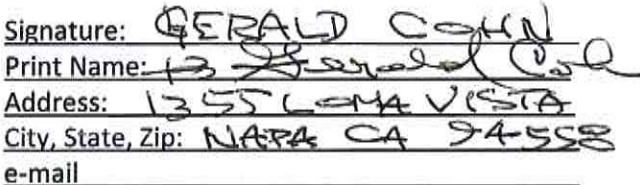 Signature: GERALD COHN
Print Name: 13 Gerald Coh
Address: 1355 LOMA VISTA
City, State, Zip: NAPA CA 94558
e-mail